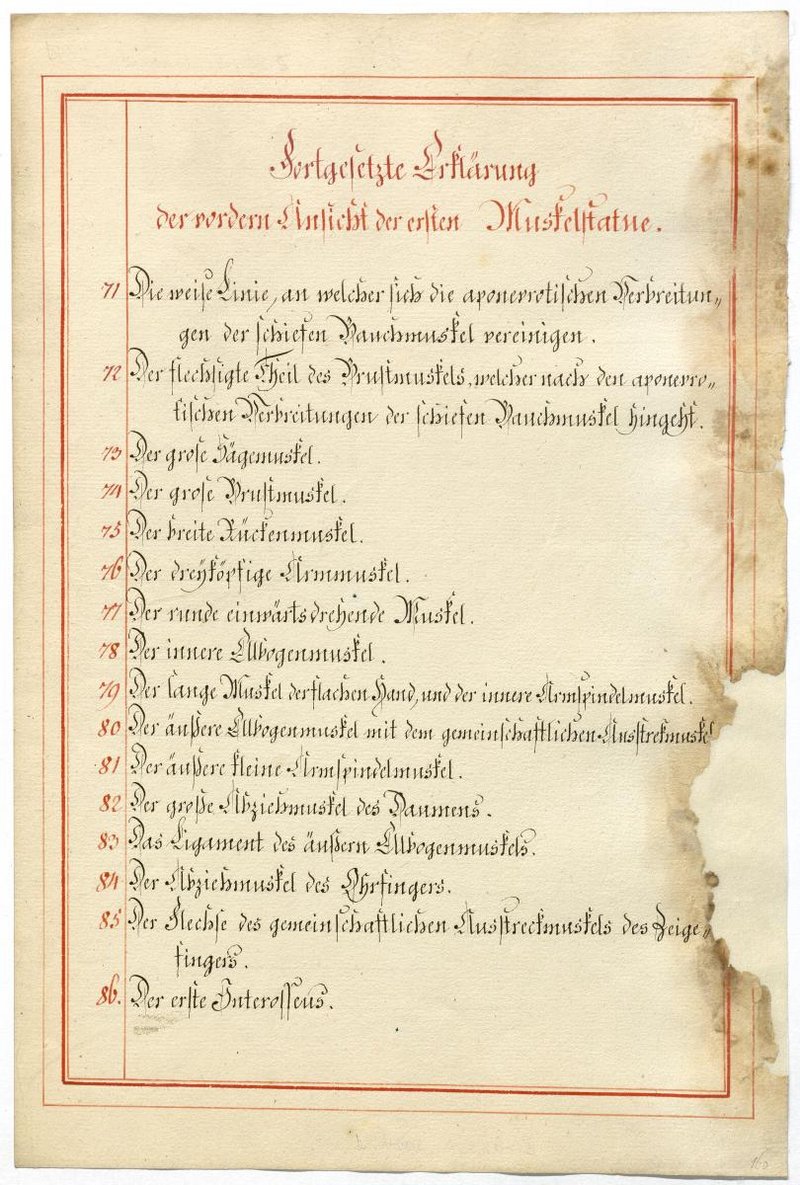 Fortgesetzte Erklärung
der vordern Ansicht der ersten Muskelstatue.
71 Die weise Linie, an welcher sich die aponevrotischen Verbreitun„
gen der schiefen Bauchmuskel vereinigen.
72 Der flechsigte Theil des Brustmuskels, welcher nach den aponevro„
tischen Verbreitungen der schiefen Bauchmuskel hingeht.
73 Der grose Sägemuskel.
74 Der grose Brustmuskel.
75 Der breite Rückenmuskel.
76 Der dreyköpfige Armmuskel.
77 Der runde einwärtsdrehende Muskel.
78 Der innere Ellbogenmuskel.
79 Der lange Muskel der flachen Hand, und der innere Armspindelmuskel.
80 Der äußere Ellbogenmuskel mit dem gemeinschaftlichen Ausstrekmuskel
81 Der äußere kleine Armspindelmuskel.
82 Der große Abziehmuskel des Daumens.
83 Das Ligament des äußern Ellbogenmuskels.
84 Der Abziehmuskel des Ohrfingers.
85 Der Flechse des gemeinschaftlichen Ausstreckmuskels des Zeige„
fingers.
86. Der erste Interosseus.
160